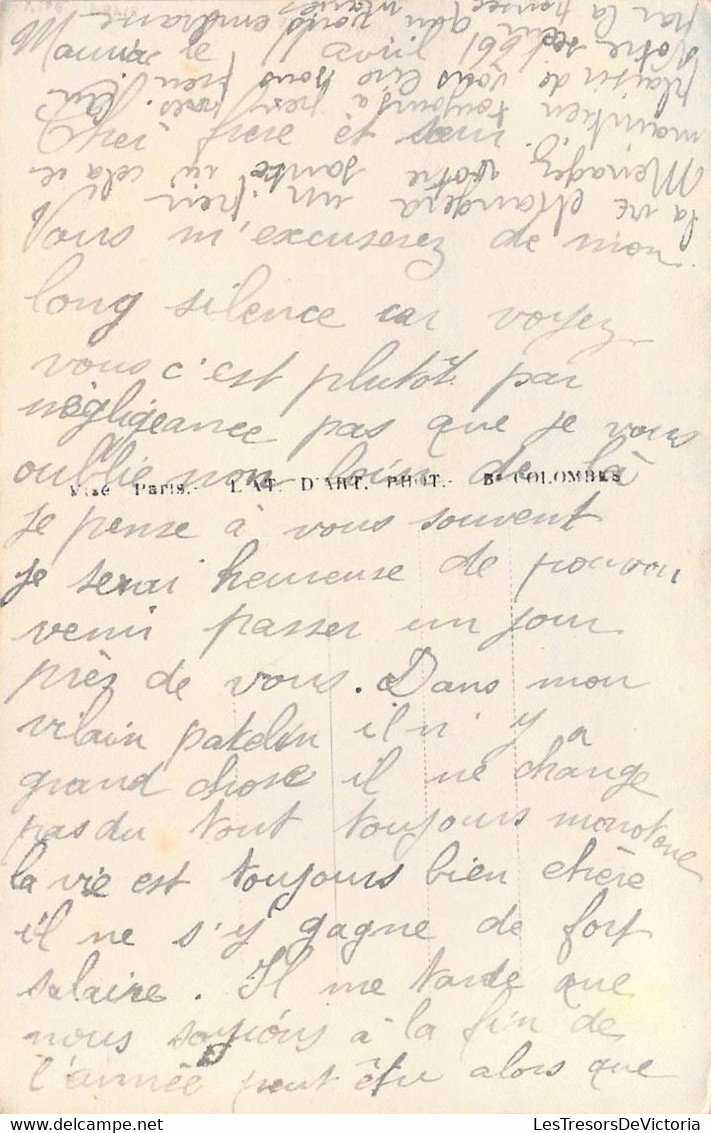 Mauriac le 1 avril
Cher frere et sœur
Vous m'excuserez de mon
long silence car voyez
vous c'est plutôt par
négligeance pas que je vous
oublie non loin de là
Visé Paris.- L'AT. D'ART. PHOT.- Bs COLOMBES
je pense à vous souvent
je serai heureuse de pouvoir
venir passer un jour
près de vous. Dans mon
vilain patelin il n'y a
grand chose il ne change
pas du tout toujours monotone
la vie est toujours bien chère
il ne s'y gagne de fort
salaire. Il me tarde que
nous soyions à la fin de
l'année peut être alors que
la vie changera un
Menagez votre santé cela
maintien toujours
plaisir de vous lire
Votre sœur qui vous embrasse
par la pensée
LesTresorsDeVictoria.com